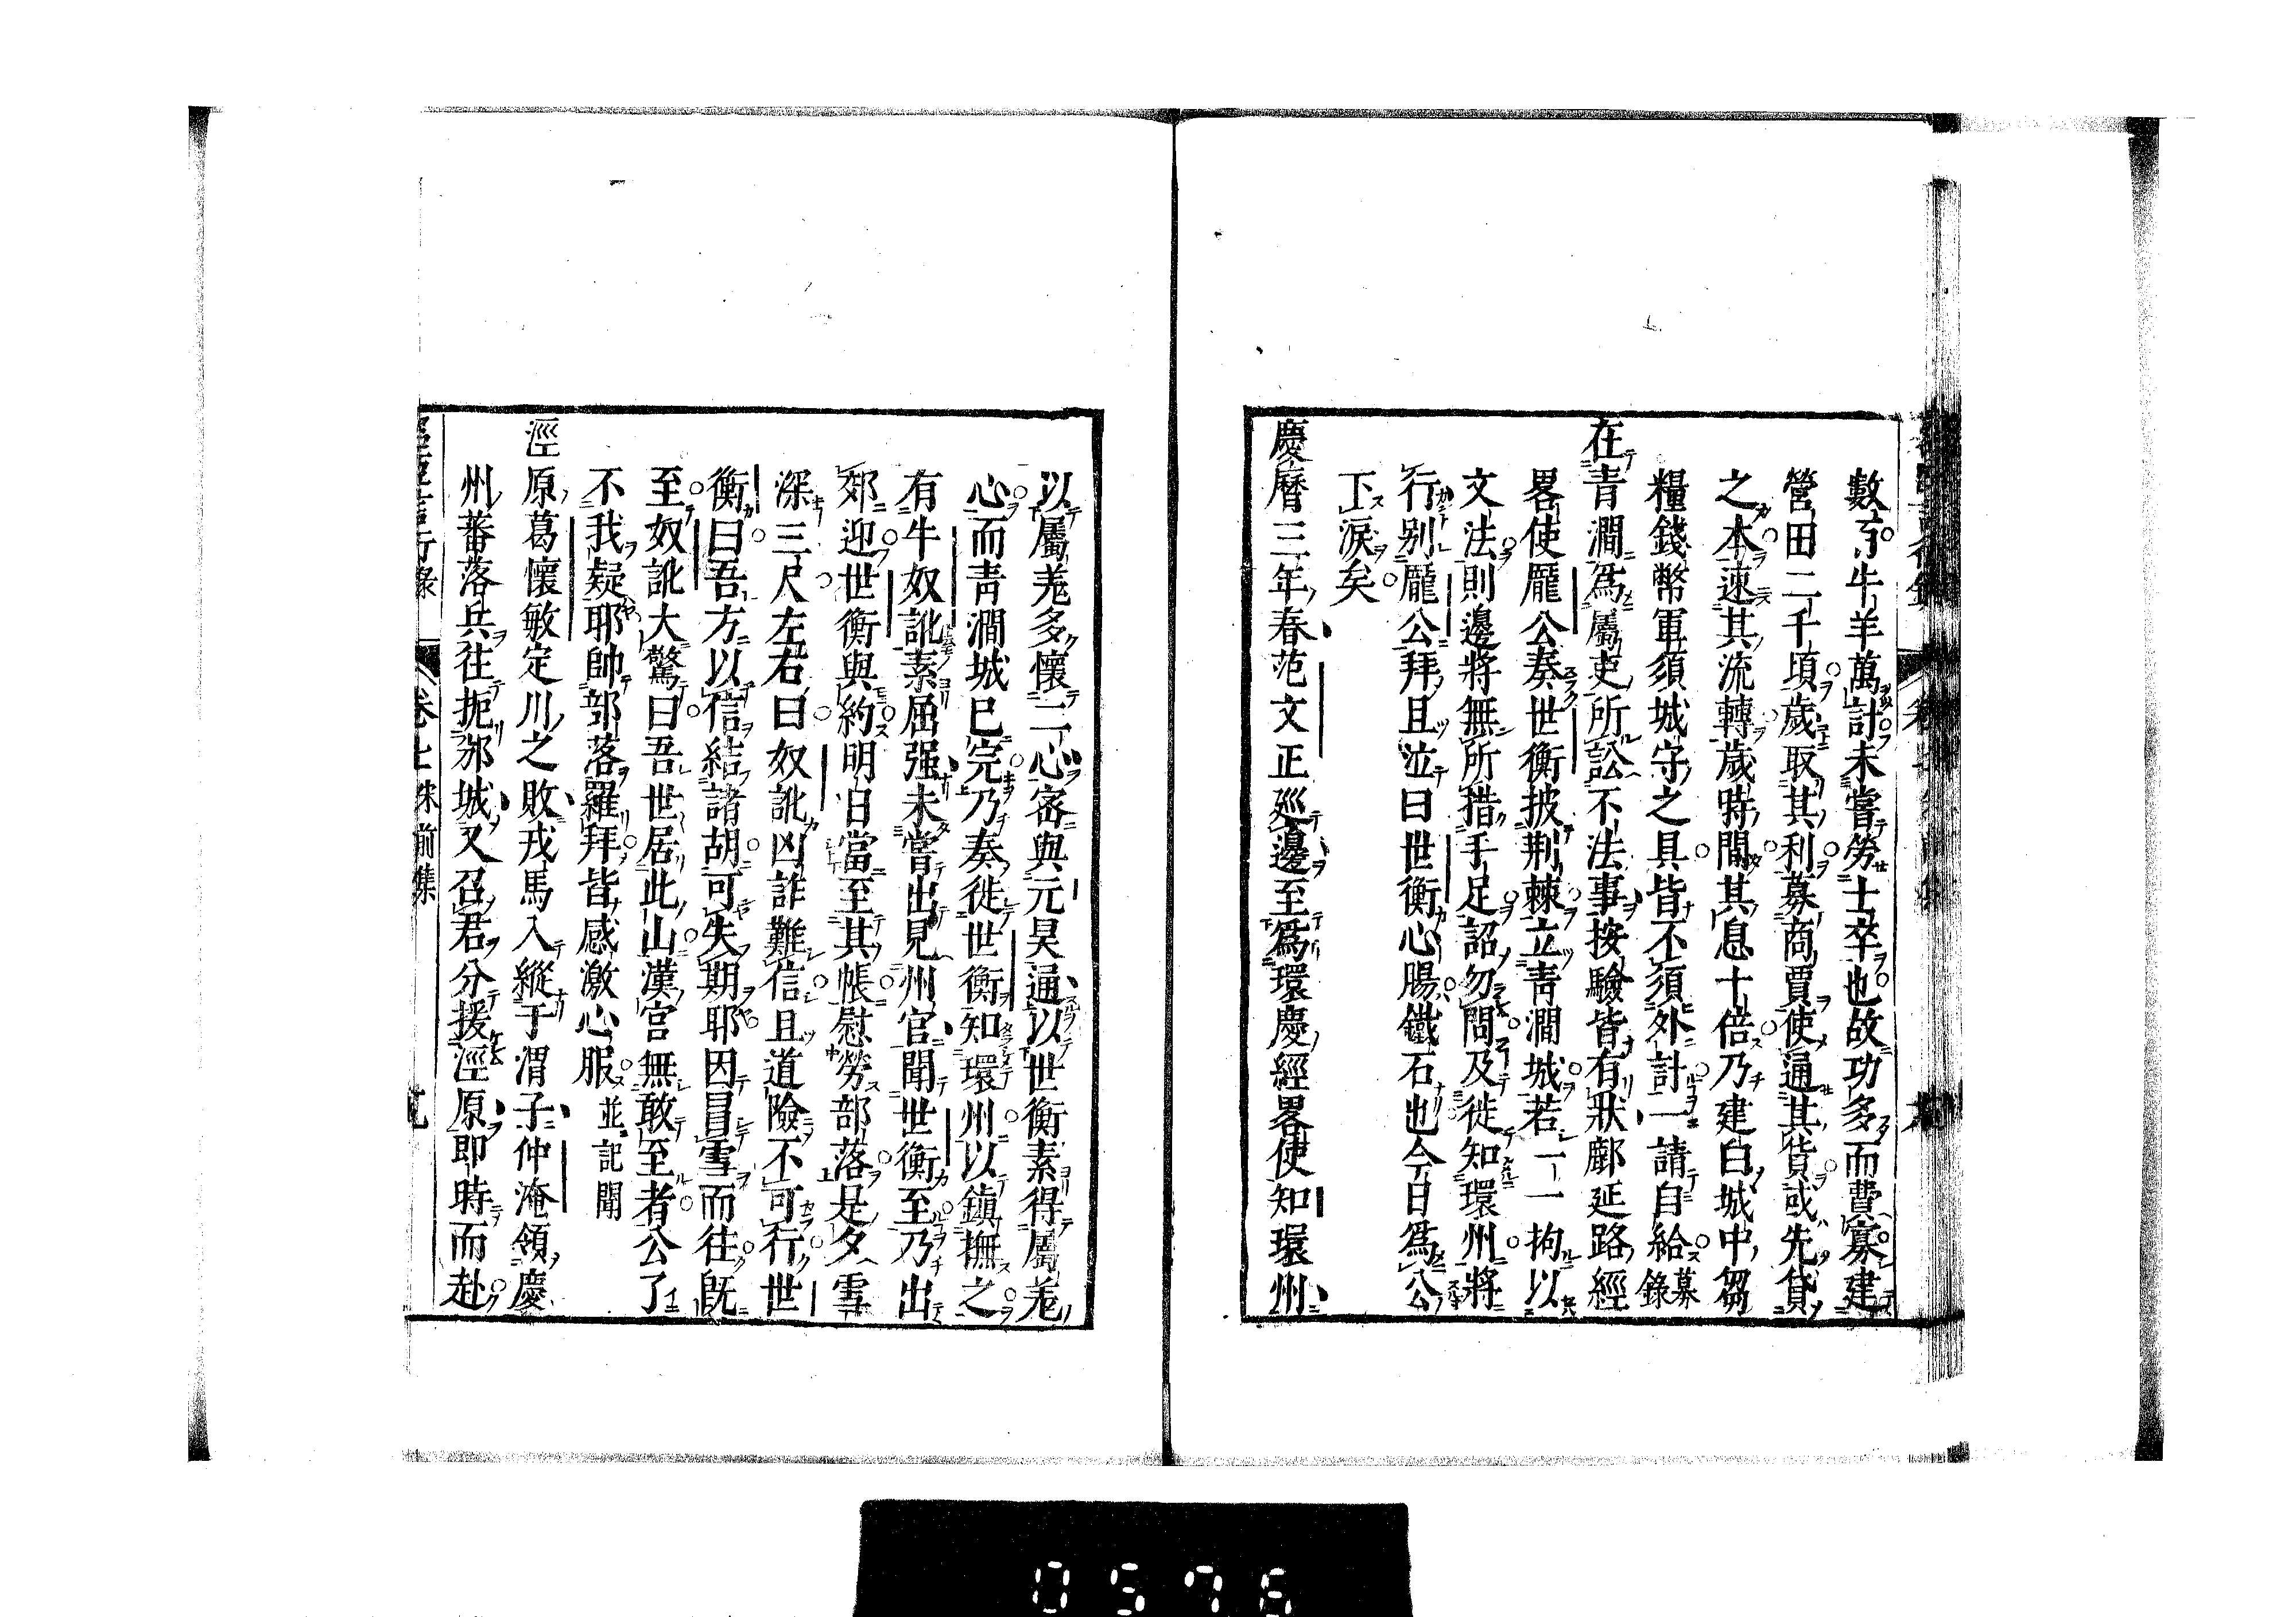 數百牛羊萬計未嘗勞士卒也故功多而費寡建
營田二千頃歲取其利募商賈使通其貨或先貸
之本速其流轉歲時間其息十倍乃建白城中芻
糧錢幣軍須城守之具皆不須外計一請自給墓錄
在青澗爲屬吏所訟不法事按驗皆有狀鄜延路經
畧使龎公奏世衡披荆棘立青澗城若一一拘以
文法則邊將無所措手足詔勿問及徙知環州將
行別龎公拜且泣曰世衡心腸鐵石也今日爲公
下淚矣
慶曆三年春范文正廵邊至爲環慶經畧使知環州
以屬羌多懷二心密與元昊通以世衡素得屬羌
心而青澗城已完乃奏徙世衡知環州以鎮撫之
有牛奴訛素屈强未嘗出見州官聞世衡至乃出
郊迎世衡與約明日當至其帳慰勞部落是夕雪
深三尺左右曰奴訛凶詐難信且道險不可行世
衡曰吾方以信結諸胡可失期耶因冒雪而往旣
至奴訛大驚曰吾世居此山漢官無敢至者公了
不我疑耶帥部落羅拜皆感激心服並記聞
涇原葛懷敏定川之敗戎馬入縱于渭子仲淹領慶
州蕃落兵往扼邠城又召君分援涇原即時而赴
卷七 前集
0576